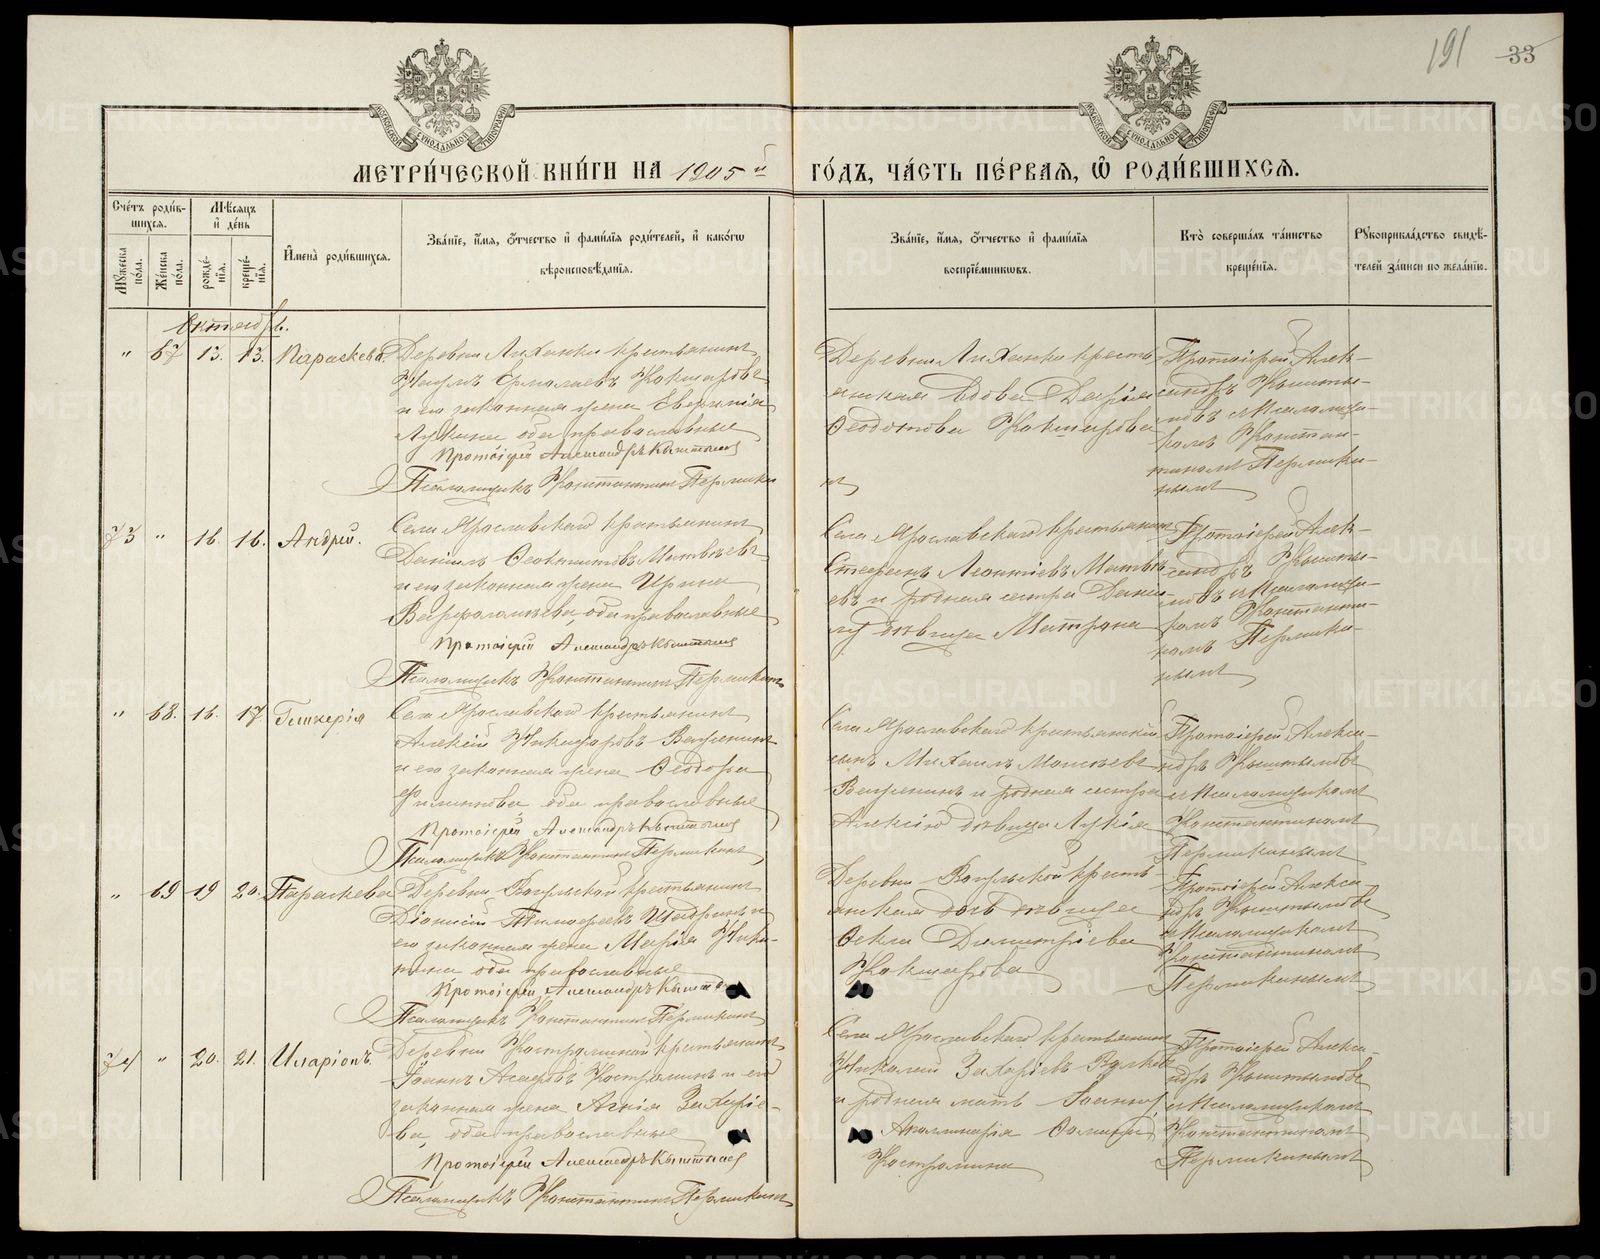 191 33
МЕТРИ́ЧЕСКОЙ КНИ́ГИ НА 1905й ГО́ДЪ, ЧА́СТЬ ПЕ́РВАЯ, Ѽ РОДИ́ВШИХСЯ.
Сче́тъ роди́в-
шихся.
Мѣ́сяцъ
и҆ де́нь
Мꙋ́жеска по́ла.
Же́нска по́ла.
рожде́-
нїѧ.
креще́-
нїѧ.
И҆мена̀ роди́вшихся.
Зва́нїе, и҆́мя, ѻ҆́тчество и҆ фами́лїя роди́телей, и҆ како́гѡ
вѣроисповѣ́данїя.
Зва́нїе, и҆́мя, ѻ҆́тчество и҆ фами́лїя
воспрїе́мникѡвъ.
Кто̀ соверша́лъ та́инство
креще́нїя.
Рꙋкоприкла́дство свидѣ́-
телей за́писи по жела́нїю.
Октябрь.
" 67 13. 13. Параскева.
Деревни Лиханки крестьянинъ
Наумъ Ермолаевъ Кокшаровъ
и его законная жена Евгенія
Лукина оба православные
Протоіерей Александръ Кыштымовъ
Псаломщикъ Константинъ Пермикинъ
Деревни Лиханки кресть-
янская вдова Дарія
Ѳеодотова Кокшарова
Протоіерей Алек-
сандръ Кышты-
мовъ съ Псаломщи-
комъ Констан-
тиномъ Пермики-
нымъ
73 " 16. 16. Андрей.
Села Ярославскаго крестьянинъ
Даніилъ Ѳеоктистовъ Матвѣевъ
и его законная жена Ирина
Варфоломѣева, оба православные
Протоіерей Александръ Кыштымовъ
Псаломщикъ Константинъ Пермикинъ
Села Ярославскаго крестьянинъ
Стефанъ Леонтіевъ Матвѣ-
евъ и родная сестра Дани-
лу дѣвица Матрона
Протоіерей Алек-
сандръ Кышты-
мовъ съ Псаломщи-
комъ Константи-
номъ Пермики-
нымъ
" 68. 16. 17 Гликерія
Села Ярославскаго крестьянинъ
Алексій Никифоровъ Вагенинъ
и его законная жена Ѳеодора
Филиппова оба православные
Протоіерей Александръ Кыштымовъ
Псаломщикъ Константинъ Пермикинъ
Села Ярославскаго крестьянскій
сынъ Михаилъ Моисеевъ
Вагенинъ и родная сестра
Алексію дѣвица Лукія
Протоіерей Алекса-
ндръ Кыштымовъ
съ Псаломщикомъ
Константиномъ
Пермикинымъ
" 69 19 20. Параскева
Деревни Вогульской крестьянинъ
Діонисій Тимофеевъ Шадринъ и
его законная жена Марія Ники-
тина оба православные
Протоіерей Александръ Кыштымовъ
Псаломщикъ Константинъ Пермикинъ
Деревни Вогульской кресть-
янская дочь дѣвица
Ѳекла Димитріева
Кокшарова
Протоіерей Алекса-
ндръ Кыштымовъ
съ Псаломщикомъ
Константиномъ
Пермикинымъ
74 " 20. 21. Иларіонъ.
Деревни крестьянинъ
Іоаннъ Костроминъ и его
законная жена Агнія Захаріе-
ва, оба православные
Протоіерей Александръ Кыштымовъ
Псаломщикъ Константинъ Пермикинъ
Села Ярославскаго крестьянинъ
Николай Захаріевъ Волковъ
и родная мать Іоанну,
Аполлинарія Ѳомина
Костромина
Протоіерей Алекса-
ндръ Кыштымовъ
съ Псаломщикомъ
Константиномъ
Пермикинымъ
METRIKI.GASO-URAL.RU